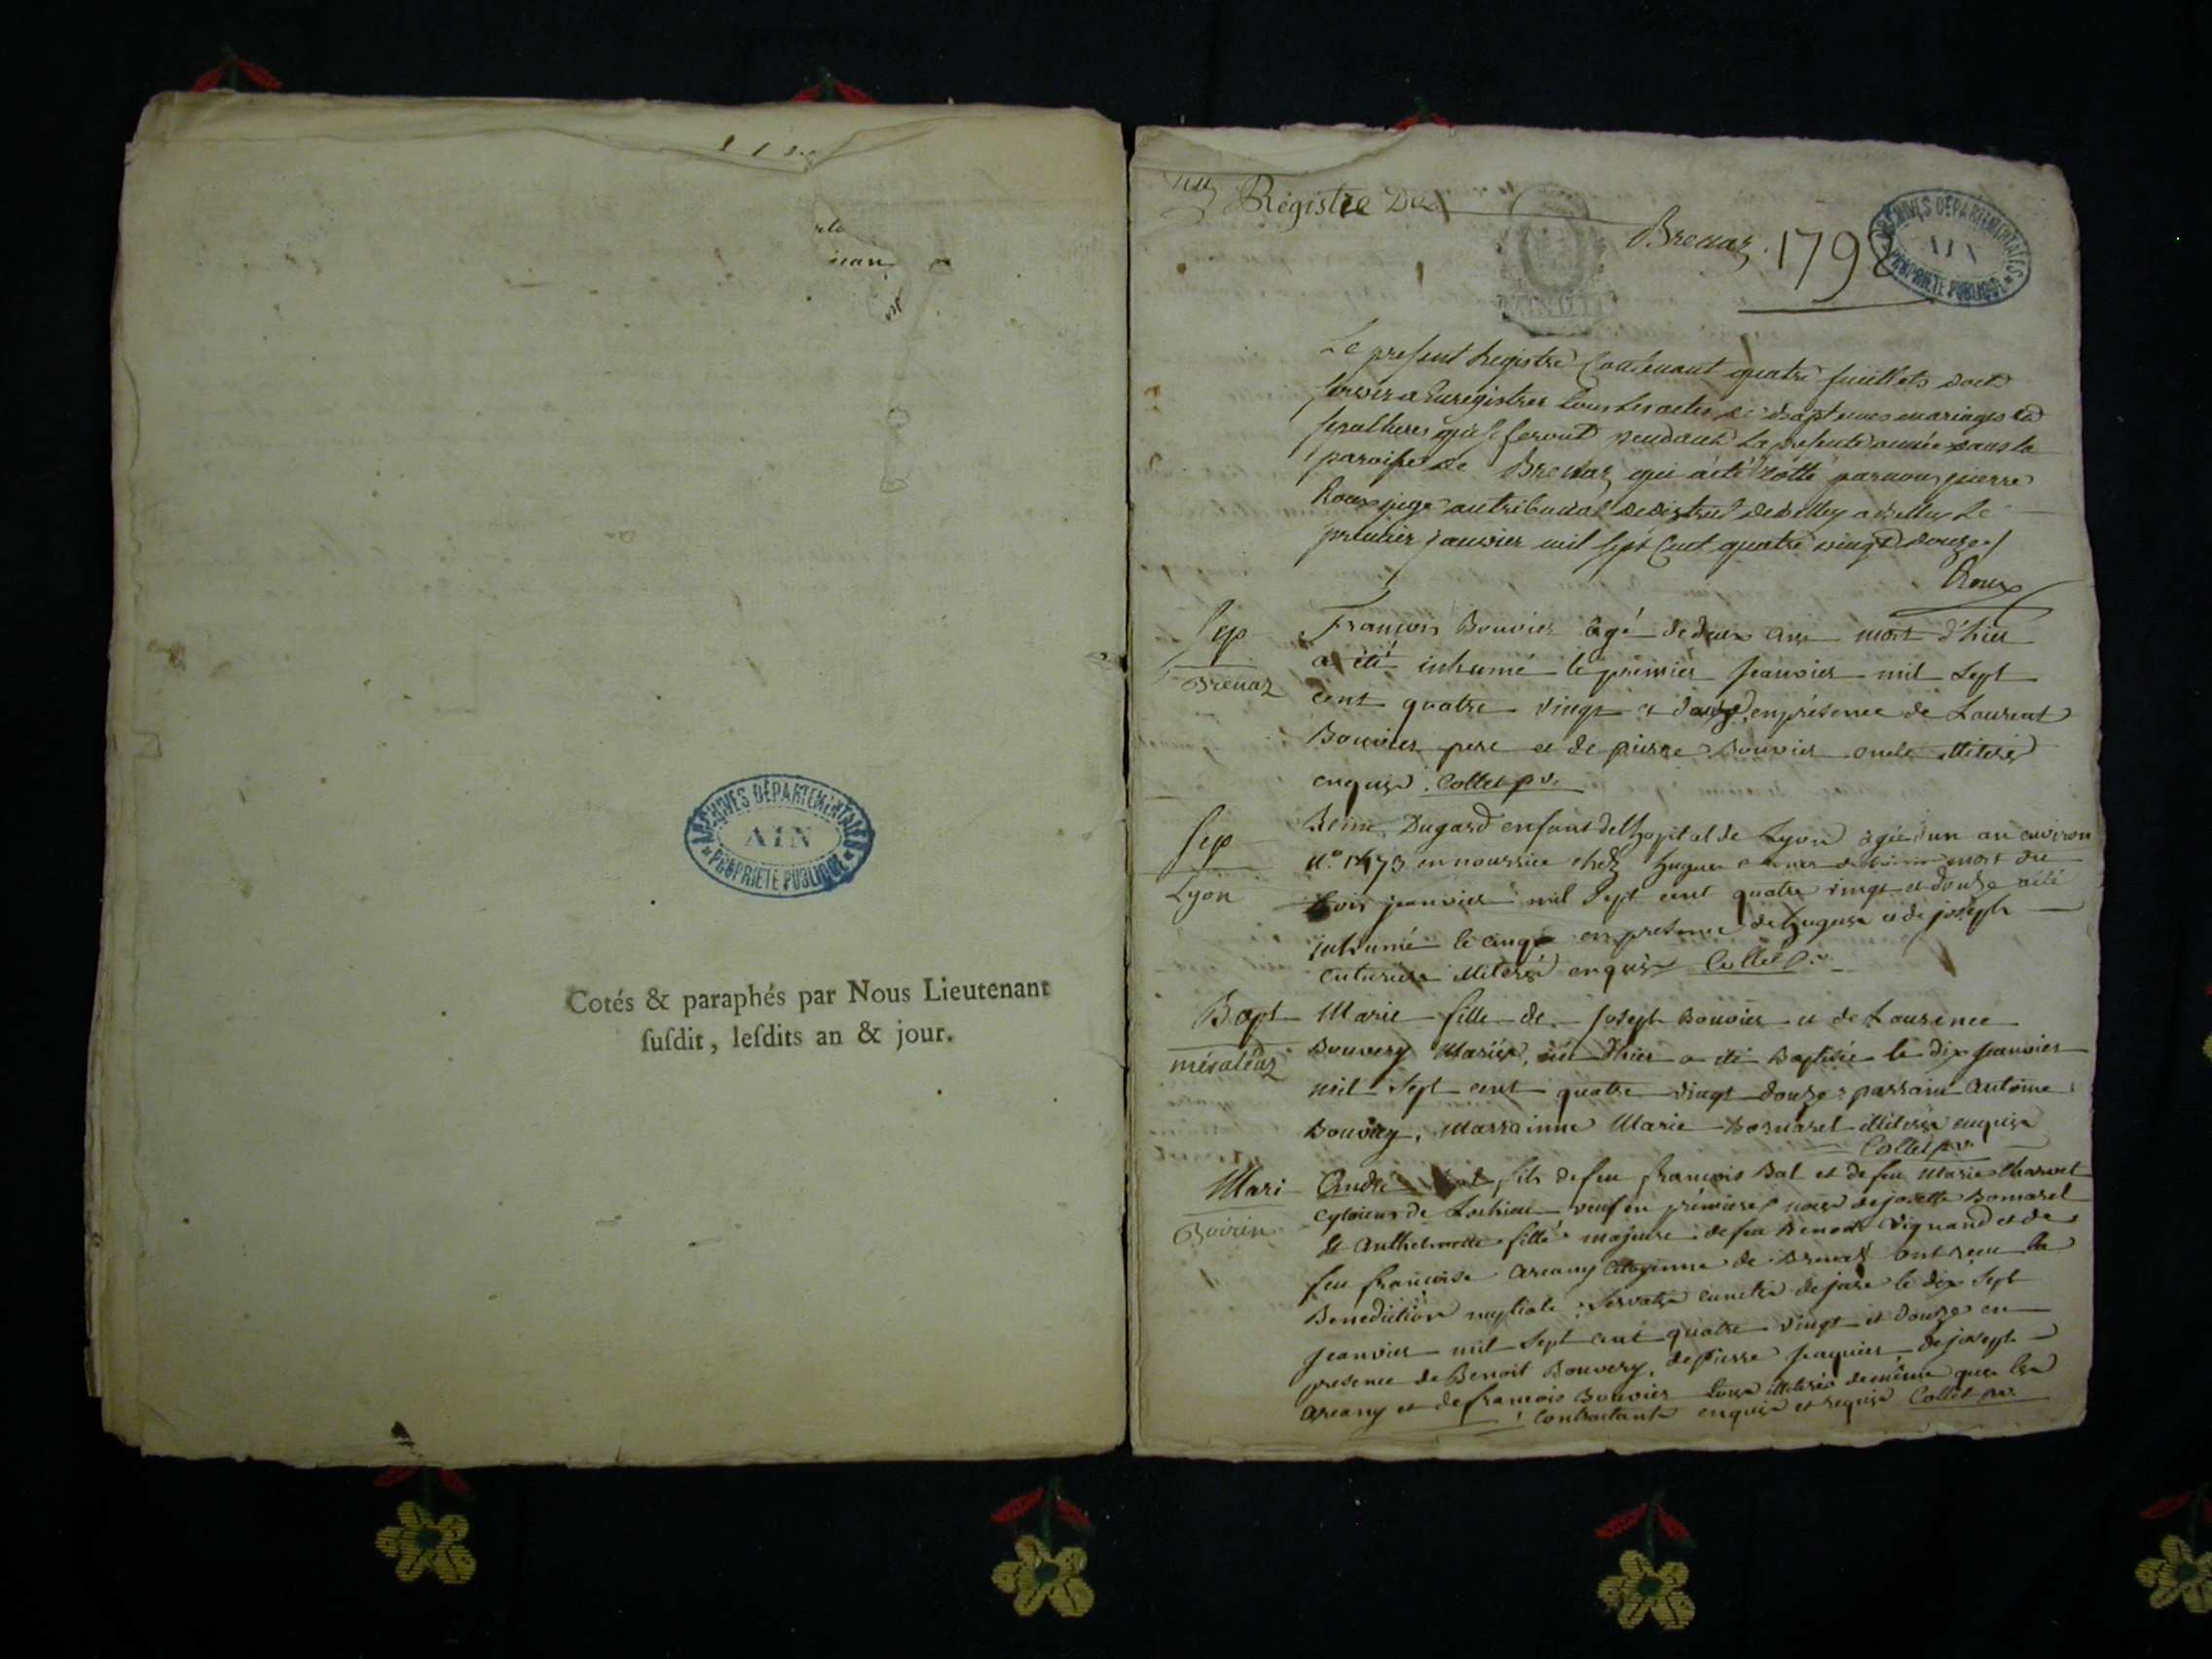 ARCHIVES DÉPARTEMENTALES
AIN
PROPRIETE PUBLIQUE
Cotés & paraphés par Nous Lieutenant
ſuſdit, leſdits an & jour.
Registre De
Brenaz 1792
ARCHIVES DÉPARTEMENTALES
AIN
PROPRIETE PUBLIQUE
Le present Registre Contenant quatre feuillets doit
servir a Enregistrer tous les actes de baptemes mariages et
sepultures qui se feront pendant la presente année dans la
paroisse de Brenaz qui a été cotté par nous pierre
Roux juge au tribunal de district de belley a belley Le
premier janvier mil sept Cent quatre vingt douze
Roux
Sep
Brenaz
François Bouvier âgé de deux ans mort d'hier
a été inhumé le premier janvier mil sept
cent quatre vingt et douze, en présence de Laurent
Bouvier pere et de pierre Bouvier oncle illiterés
enquis. Collet
Sep
Lyon
Dugard enfant de l'hopital de Lyon âgé d'un an environ
en nourrice chez mort du
trois janvier mil sept cent quatre vingt et douze a été
inhumé le cinq en presence de et de joseph
illiterés enquis Collet
Bapt
méraléaz
Marie fille de Joseph Bouvier et de Laurence
Bouvery Mariés, née d'hier a été Baptisée le dix janvier
mil sept cent quatre vingt douze: parrain Antoine
Bouvery, Marrainne Marie Bornarel illiterés enquis
Collet
Mari
Boirin
André Bal fils de feu françois Bal et de feu Marie Charvet
cytoiens de Lochieu veuf en prémieres noces de josette Bornarel
Et Anthelmette fille majeure de feu Benoit Vignand et de
feu françoise Areany Citoyenne de Brenaz ont reçu la
Benediction nuptiale servatis cunctis de jure le dix sept
janvier mil sept cent quatre vingt et douze en
presence de Benoit Bouvery, de pierre Jaquier, de joseph
Areany et de françois Bouvier tous illiterés de même que les
contractants enquis et requis Collet